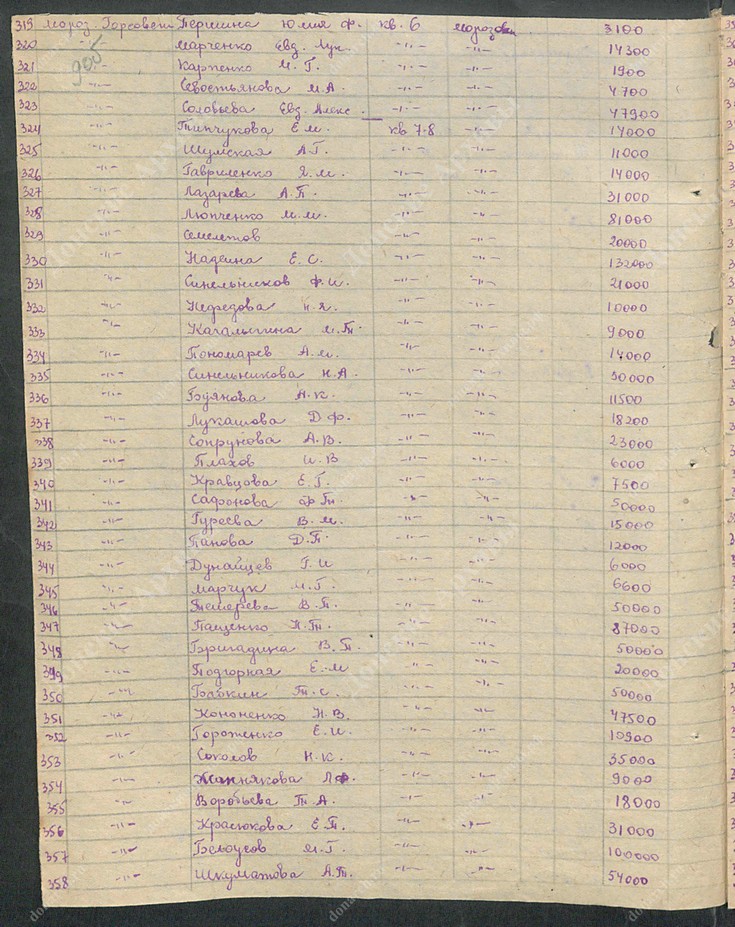 319 Мороз. Горсовет Першина Юлия Ф. кв. 6 Морозовск 3100
320 -"- Марченко Евд. Лук. -"- -"- 14300
321 Карпенко М. Г. -"- -"- 1900
322 -"- Севостьянова М.А. -"- -"- 4700
323 -"- Соловьева Евд. Алекс. -"- -"- 47900
324 -"- Типчукова Е.М. кв 7-8 -"- 14000
325 -"- Шумская А.Г. -"- -"- 11000
326 -"- Гавриленко Я.М. -"- -"- 14000
327 -"- Лазарева А.П. -"- -"- 31000
328 -"- Люпченко М.М. -"- -"- 81000
329 -"- Семелетов -"- -"- 20000
330 -"- Надеина Е.С. -"- -"- 132000
331 -"- Синельников Ф.И. -"- -"- 21000
332 -"- Нефедова Н.Я. -"- -"- 10000
333 -"- Кагальгина М.Т. -"- -"- 9000
334 -"- Пономарев А.М. -"- -"- 14000
335 -"- Синельникова Н.А. -"- -"- 30000
336 -"- Будянова А.К. -"- -"- 11500
337 -"- Лукашова Д.Ф. -"- -"- 18200
338 -"- Сопрунова А.В. -"- -"- 23000
339 -"- Плахов И.В -"- -"- 6000
340 -"- Кравцова Е.Г. -"- -"- 7500
341 -"- Сафонова Ф.Т. -"- -"- 50000
342 -"- Гуреева В.М. -"- -"- 15000
343 -"- Панова Д.П. -"- -"- 12000
344 -"- Дунайцев Г.И -"- -"- 6000
345 -"- Марчук М.Г. -"- -"- 6600
346 -"- Тетерева В.П. -"- -"- 50000
347 -"- Пащенко Н.Т. -"- -"- 87000
348 -"- Бригадина В.Т. -"- -"- 50000
349 -"- Подгорная Е.М -"- -"- 20000
350 -"- Бабкин Т.С. -"- -"- 50000
351 -"- Кононенко Н.В. -"- -"- 47500
352 -"- Гороженко Е.И. -"- -"- 10900
353 -"- Соколов Н.К. -"- -"- 35000
354 -"- Л.Ф. -"- -"- 9000
355 -"- Воробьева Т.А. -"- -"- 18000
356 -"- Красюкова Е.П. -"- -"- 31000
357 -"- Белоусов М.Г. -"- -"- 100000
358 -"- Шкуматова А.Т. -"- -"- 54000